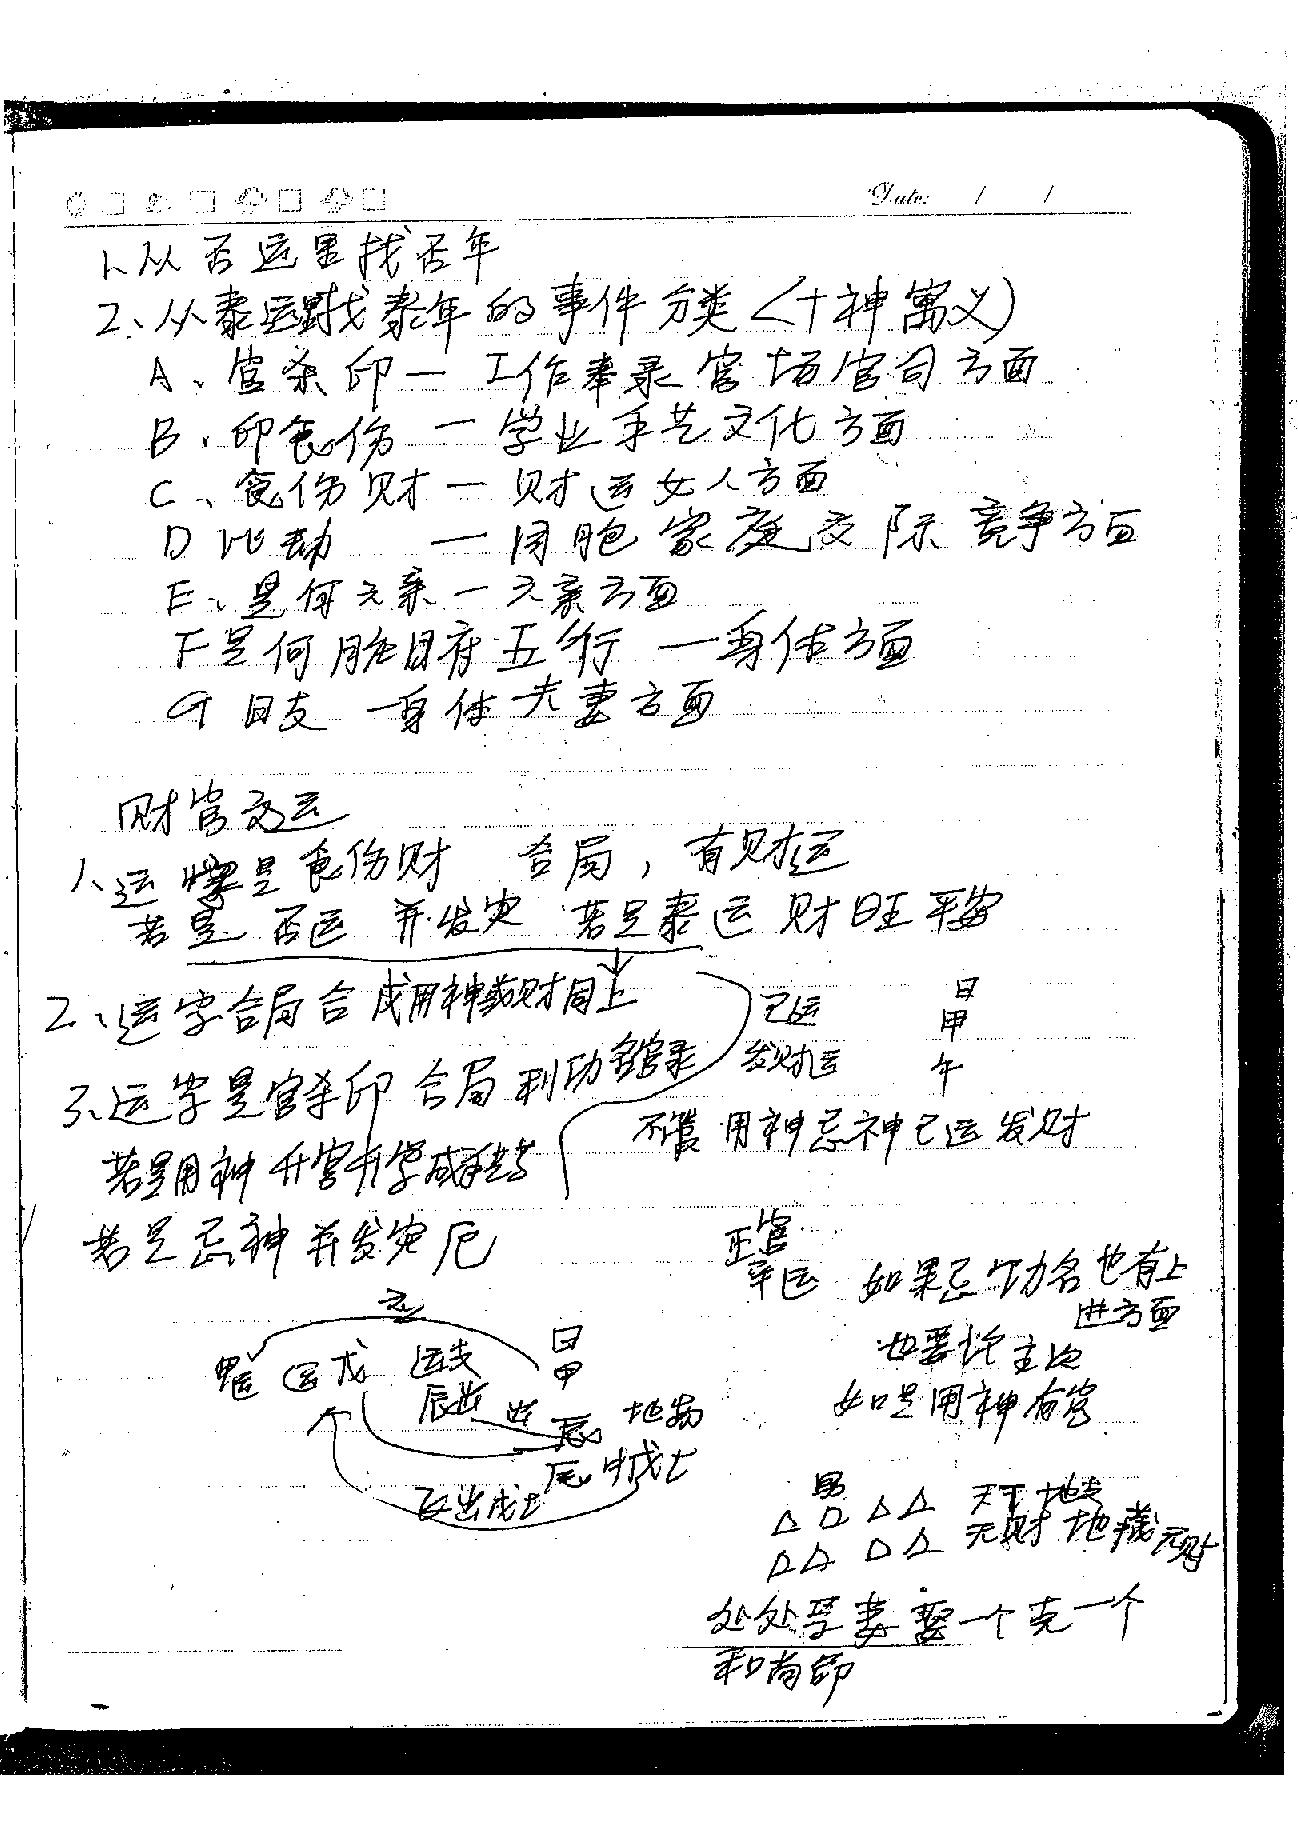 Date: / /
1、从否运里找否年
2、从泰运里找泰年的事件分类(十神寓义)
A、官杀印一工作奉录官场官司方面
B、印食伤一学业手艺文化方面
C、食伤财一财运女人方面
D 比劫 一同胞家庭交际竞争方面
E、是何六亲一六亲方面
F是何脏腑五行一身体方面
G日支一身体夫妻方面
财官运
1、运字是食伤财 合局,有财运
若是否运并发灾 若是泰运财旺平安
2、运字合局合成用神或财同上
己运
发财运
日
甲
午
3、运字是官杀印合局利功名官录
不管用神忌神己运发财
若是用神升官升学
若是忌神并发灾厄
正官
辛运 如果忌个功名也有上
进方面
也要
如是用神有官
运戊 运支
日
甲
辰
辰中戊土
男
天干地支
无财 地藏无财
处处寻妻娶一个克一个
和尚命